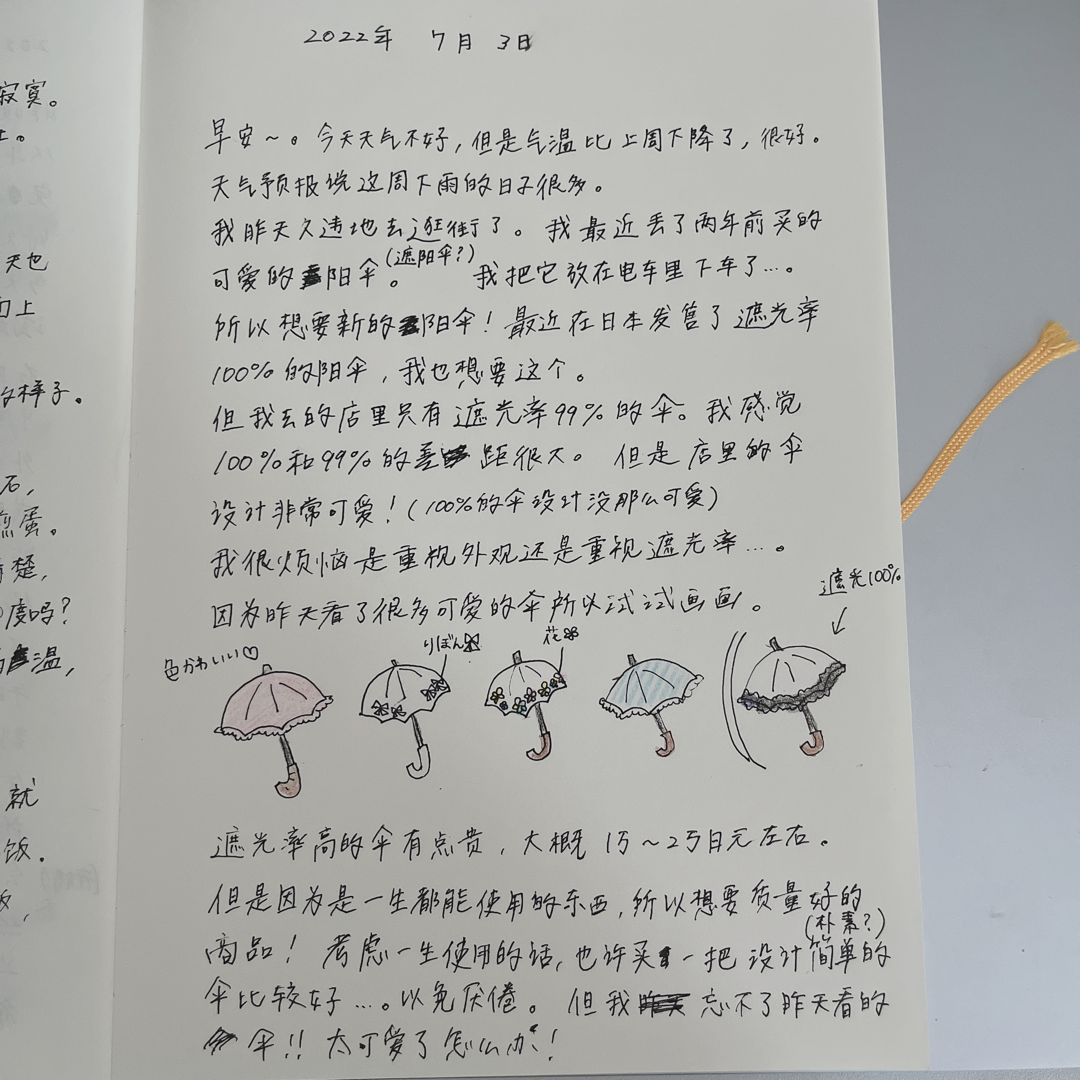 寂寞。
天也
面上
的样子。
石,
煎蛋。
清楚,
度吗?
温,
就
饭.
2022年 7月 3日
早安~。今天天气不好,但是气温比上周下降了,很好。
天气预报说这周下雨的日子很多。
我昨天久违地去逛街了。我最近丢了两年前买的
可爱的阳伞。(遮阳伞?) 我把它放在电车里下车了…。
所以想要新的阳伞!最近在日本发售了遮光率
100%的阳伞,我也想要这个。
但我去的店里只有遮光率99%的伞。我感觉
100%和99%的差距很大。但是店里的伞
设计非常可爱!(100%的伞设计没那么可爱)
我很烦恼是重视外观还是重视遮光率…。
因为昨天看了很多可爱的伞所以试试画画。
遮光100%
色かわいい♡
りぼん
花
遮光率高的伞有点贵,大概1万~2万日元左右。
但是因为是一生都能使用的东西,所以想要质量好的
(朴素?)
商品!考虑一生使用的话,也许买一把设计简单的
伞比较好…。以免厌倦。但我忘不了昨天看的
伞!!太可爱了怎么办!